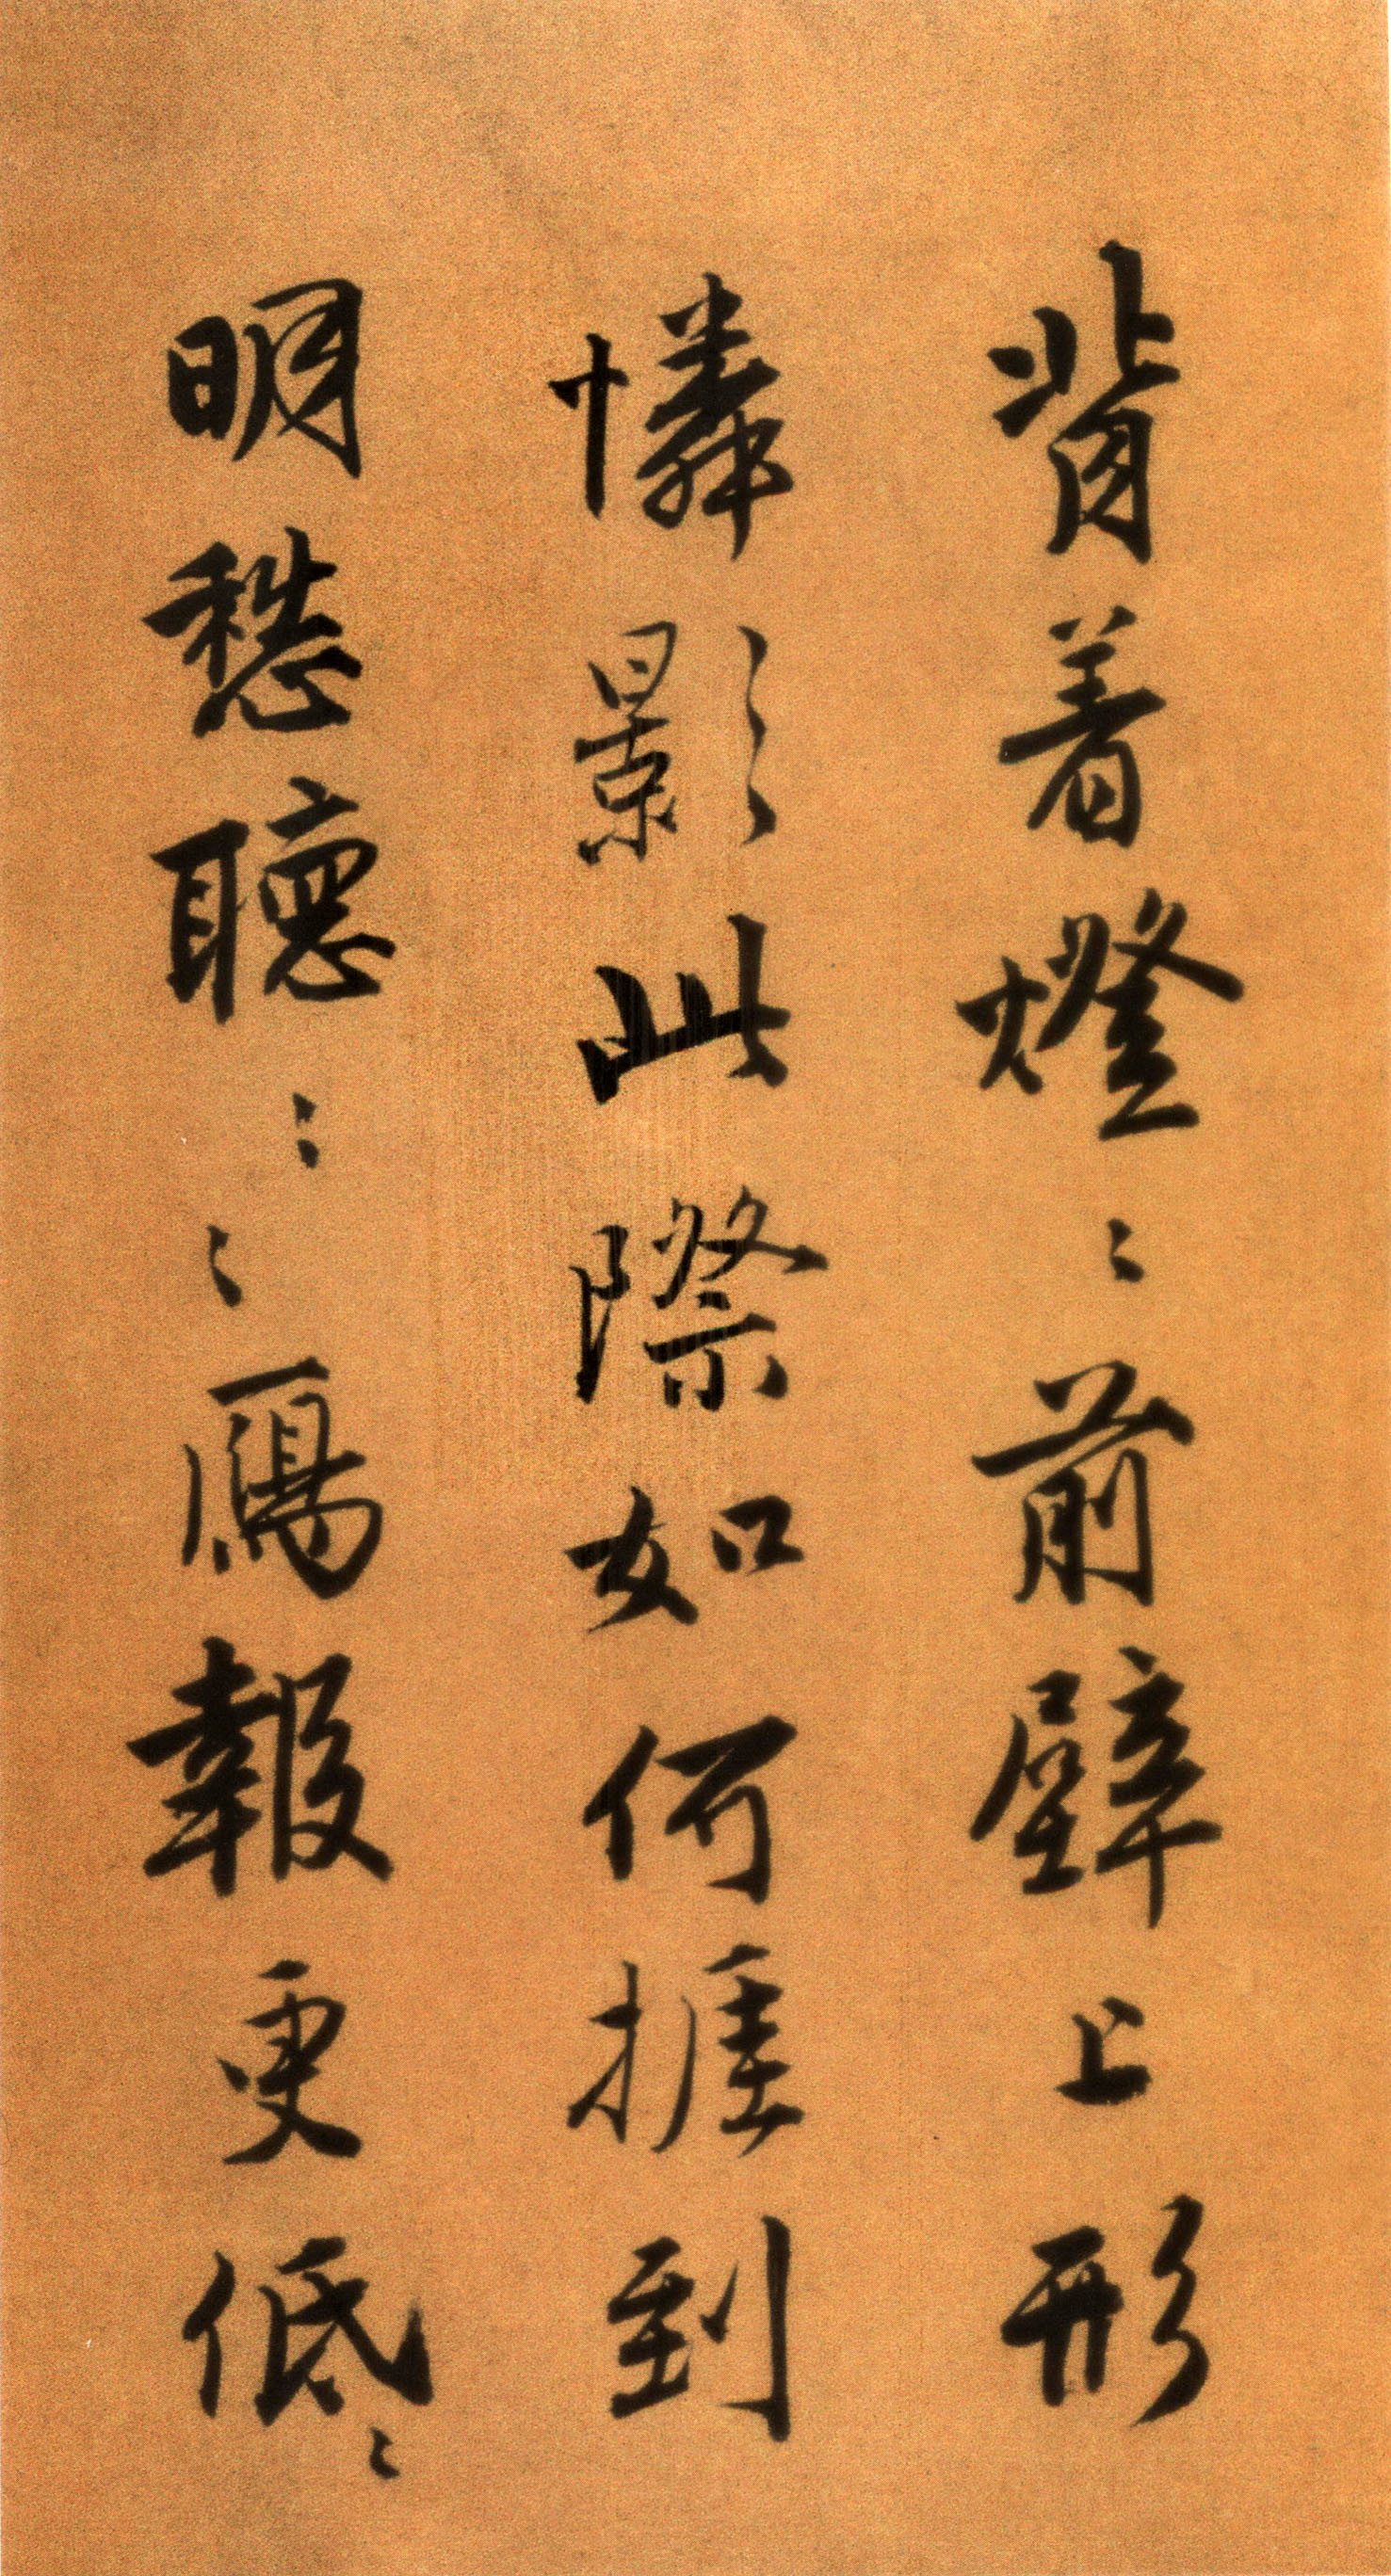 背着燈〻前壁上形
憐影此際如何捱到
明愁聽〻〻鴈報更
低〻